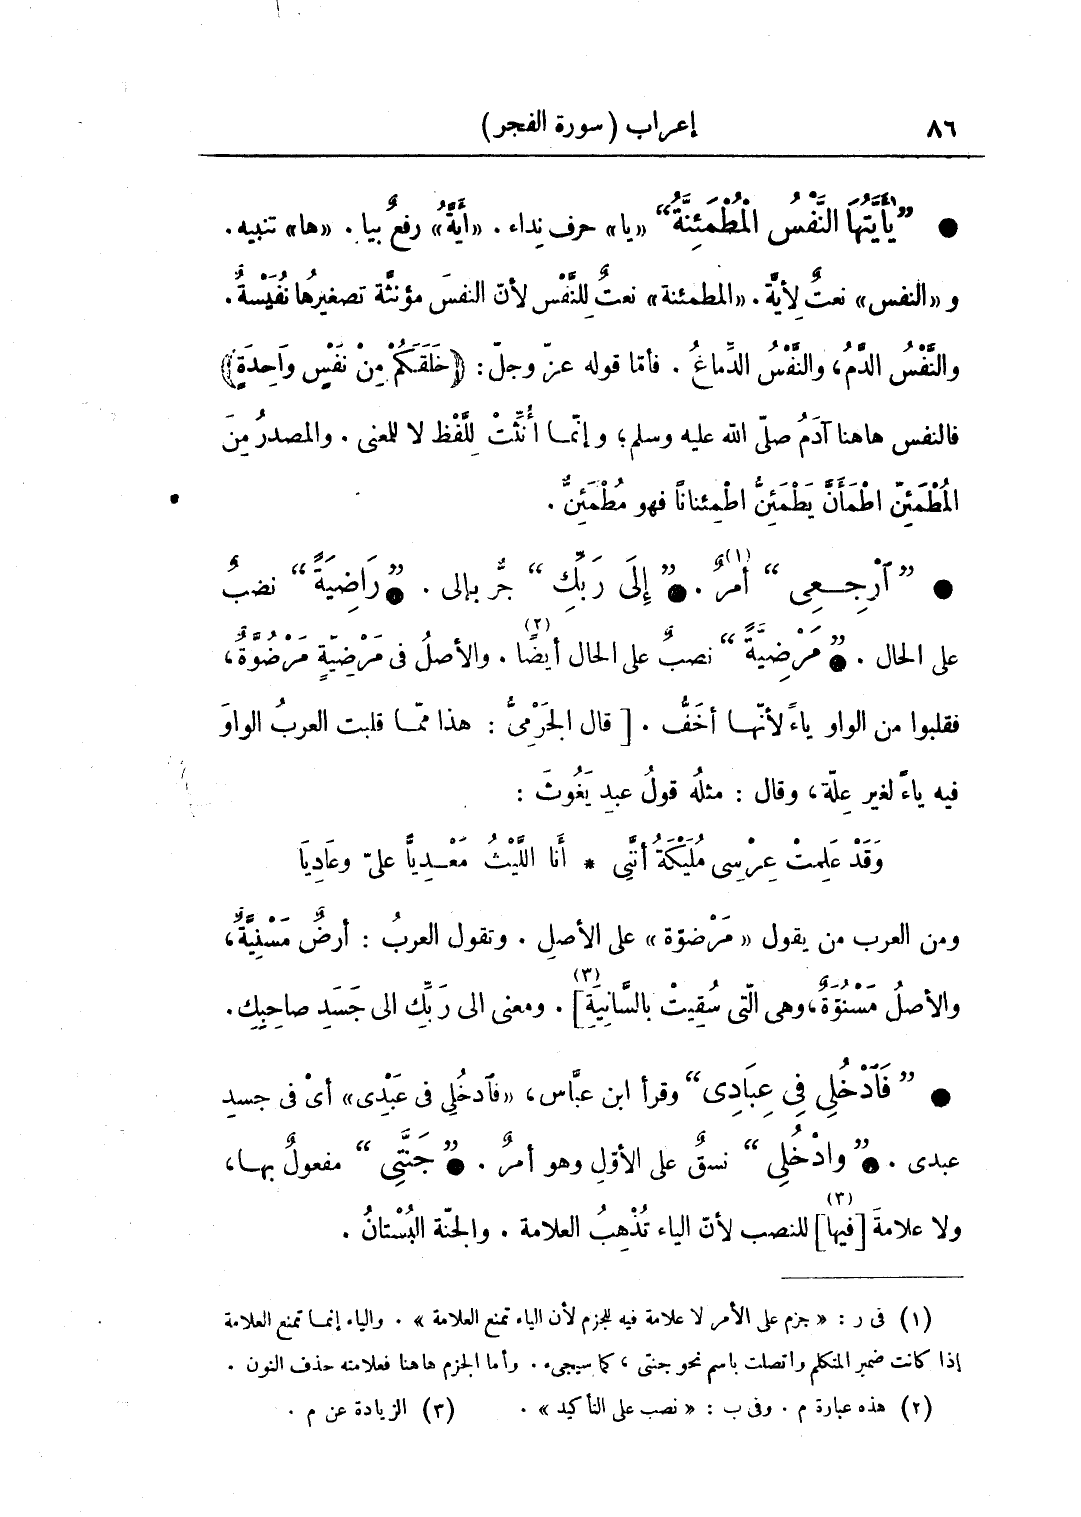 ٨٦ إعراب (سورة الفجر)
● ”يَأَيَّتُهَا النَّفْسُ الْمُطْمَئِنَّةُ“ «يا» حرف نِداء . «أَيَّةُ» رفعٌ بيا . «ها» تنبيه .
و «النفس» نعتٌ لِأيةَّ . «المطمئنة» نعتٌ لِلنَّفْس لأنّ النفسَ مؤنثَّة تصغيرُها نُفَيْسةٌ .
والنَّفْسُ الدَّمُ ، والنَّفْسُ الدِّماغُ . فأمّا قوله عزّ وجلّ : ﴿خَلَقَكُمْ مِنْ نَفْسٍ واَحِدَةٍ﴾
فالنفس هاهنا آدَمُ صلّى الله عليه وسلم ؛ وإنّمــا أُنِّثَتْ لِلَّفْظ لا للمعنى . والمصدرُ مِنَ
المُطْمَئِنّ اطْمَأَنَّ يَطْمَئِنُّ اطْمِئناناً فهو مُطْمَئِنٌّ .
● ”ٱرْجِــعِى“ أمرٌ(١) . ● ”إِلَى رَبِّكِ“ جرٌّ بإلى . ● ”رَاضِيَةً“ نصبٌ
على الحال . ● ”مَرْضِيَّةً“ نصبٌ على الحال أيضًا(٢) . والأصلُ فى مَرْضِيّةٍ مَرْضُوَّةٌ ،
فقلبوا من الواو ياءً لأنّهــا أخَفُّ . [ قال الجَرْمِىُّ : هذا ممّا قلبت العربُ الواوَ
فيه ياءً لغير عِلّة ، وقال : مثلُه قولُ عبدِ يَغُوثَ :
وَقَدْ عَلِمتْ عِرْسِى مُلَيْكَةُ أنَّنِى * أَنا اللَّيْثُ مَعْــدِيًّا علىّ وعَادِيَا
ومن العرب من يقول «مَرْضوّة» على الأصلِ . وتقول العربُ : أرضٌ مَسْنِيَّةٌ ،
والأصلُ مَسْنُوّةٌ ، وهى الّتى سُقِيتْ بالسَّانِيَةِ](٣) . ومعنى الى رَبِّكِ الى جَسَدِ صاحِبِكِ .
● ”فَٱدْخُلِى فِى عِبَادِى“ وقرأ ابن عبَّاس ، «فٱدخُلِى فى عَبْدِى» أىْ فى جسدِ
عبدى . ● ”وادْخُلِى“ نسقٌ على الأوّلِ وهو أمرٌ . ● ”جَنَّتِى“ مفعولٌ بهــا ،
ولا علامةَ [فيها](٣) للنصب لأنّ الياء تُذْهِبُ العلامة . والجنّة البُسْتانُ .
(١) فى ر : « جزم على الأمر لا علامة فيه للجزم لأن الياء تمنع العلامة » . والياء إنمــا تمنع العلامة
إذا كانت ضمير المتكلم واتصلت باسم نحو جنتى ، كما سيجىء . وأما الجزم هاهنا فعلامته حذف النون .
(٢) هذه عبارة م . وفى ب : « نصب على التأكيد » . (٣) الزيادة عن م .